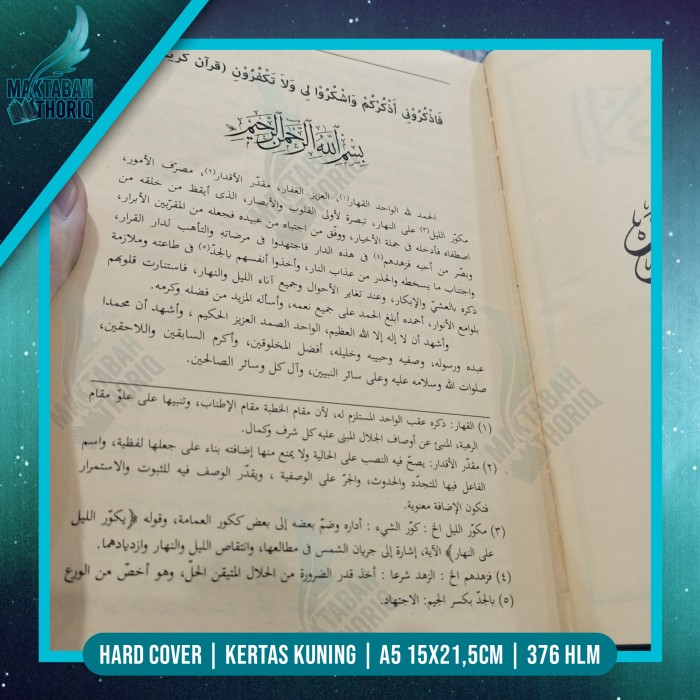 MAKTABAH
THORIQ
فَاذْكُرُونِى أَذْكُرْكُمْ وَاشْكُرُوا لِى وَلاَ تَكْفُرُوْنِ (قرآن كريم
بسم الله الرحمن الرحيم
الحمد لله الواحد القهار(١) العزيز الغفار، مقدّر الأقدار(٢)، مصرّف الأمور،
مكوّر الليل(٣) على النهار، تبصرة لأولى القلوب والأبصار، الذى أيقظ من خلقه من
اصطفاه فأدخله فى جملة الأخيار، ووفّق من اجتباه من عبيده فجعله من المقرّبين الأبرار،
وبصّر من أحبه فزهدهم(٤) فى هذه الدار فاجتهدوا فى مرضاته والتأهب لدار القرار،
واجتناب ما يسخطه والحذر من عذاب النار، وأخذوا أنفسهم بالجدّ(٥) فى طاعته وملازمة
ذكره بالعشىّ والإبكار، وعند تغاير الأحوال وجميع آناء الليل والنهار، فاستنارت قلوبهم
بلوامع الأنوار، أحمده أبلغ الحمد على جميع نعمه، وأسأله المزيد من فضله وكرمه.
وأشهد أن لا إله إلا الله العظيم، الواحد الصمد العزيز الحكيم ، وأشهد أن محمدا
عبده ورسوله، وصفيه وحبيبه وخليله، أفضل المخلوقين، وأكرم السابقين واللاحقين،
صلوات الله وسلامه عليه وعلى سائر النبيين، وآل كل وسائر الصالحين.
(١) القهار: ذكره عقب الواحد المستلزم له، لأن مقام الخطبة مقام الإطناب، وتنبيها على علوّ مقام
الرهبة، المنبئ عن أوصاف الجلال المبنى عليه كل شرف وكمال.
(٢) مقدّر الأقدار: يصحّ فيه النصب على الحالية ولا يمنع منها إضافته بناء على جعلها لفظية، واسم
الفاعل فيها للتجدّد والحدوث، والجرّ على الوصفية ، ويقدّر الوصف فيه للثبوت والاستمرار
فتكون الإضافة معنوية.
(٣) مكوّر الليل الخ : كوّر الشيء : أداره وضمّ بعضه إلى بعض ككور العمامة، وقوله ﴿يكوّر الليل
على النهار﴾ الآية، إشارة إلى جريان الشمس فى مطالعها، وانتقاص الليل والنهار وازديادهما.
(٤) فزهدهم الخ : الزهد شرعا : أخذ قدر الضرورة من الحلال المتيقن الحلّ، وهو أخصّ من الورع
(٥) بالجدّ بكسر الجيم: الاجتهاد.
HARD COVER | KERTAS KUNING | A5 15X21,5CM | 376 HLM